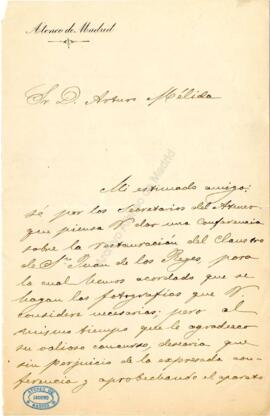 Ateneo de Madrid
Sr. D. Arturo Mélida
Mi estimado amigo:
sé por los Secretarios del Ateneo
que piensa V. dar una Conferencia
sobre la restauración del Claustro
de Sn. Juan de los Reyes, para
la cual hemos acordado que se
hagan las fotografías que V.
considere necesarias; pero al
mismo tiempo que le agradezco
su valioso concurso, desearía que
sin perjuicio de la expresada con-
ferencia y aprovechando el aparato
ATENEO DE
MADRID